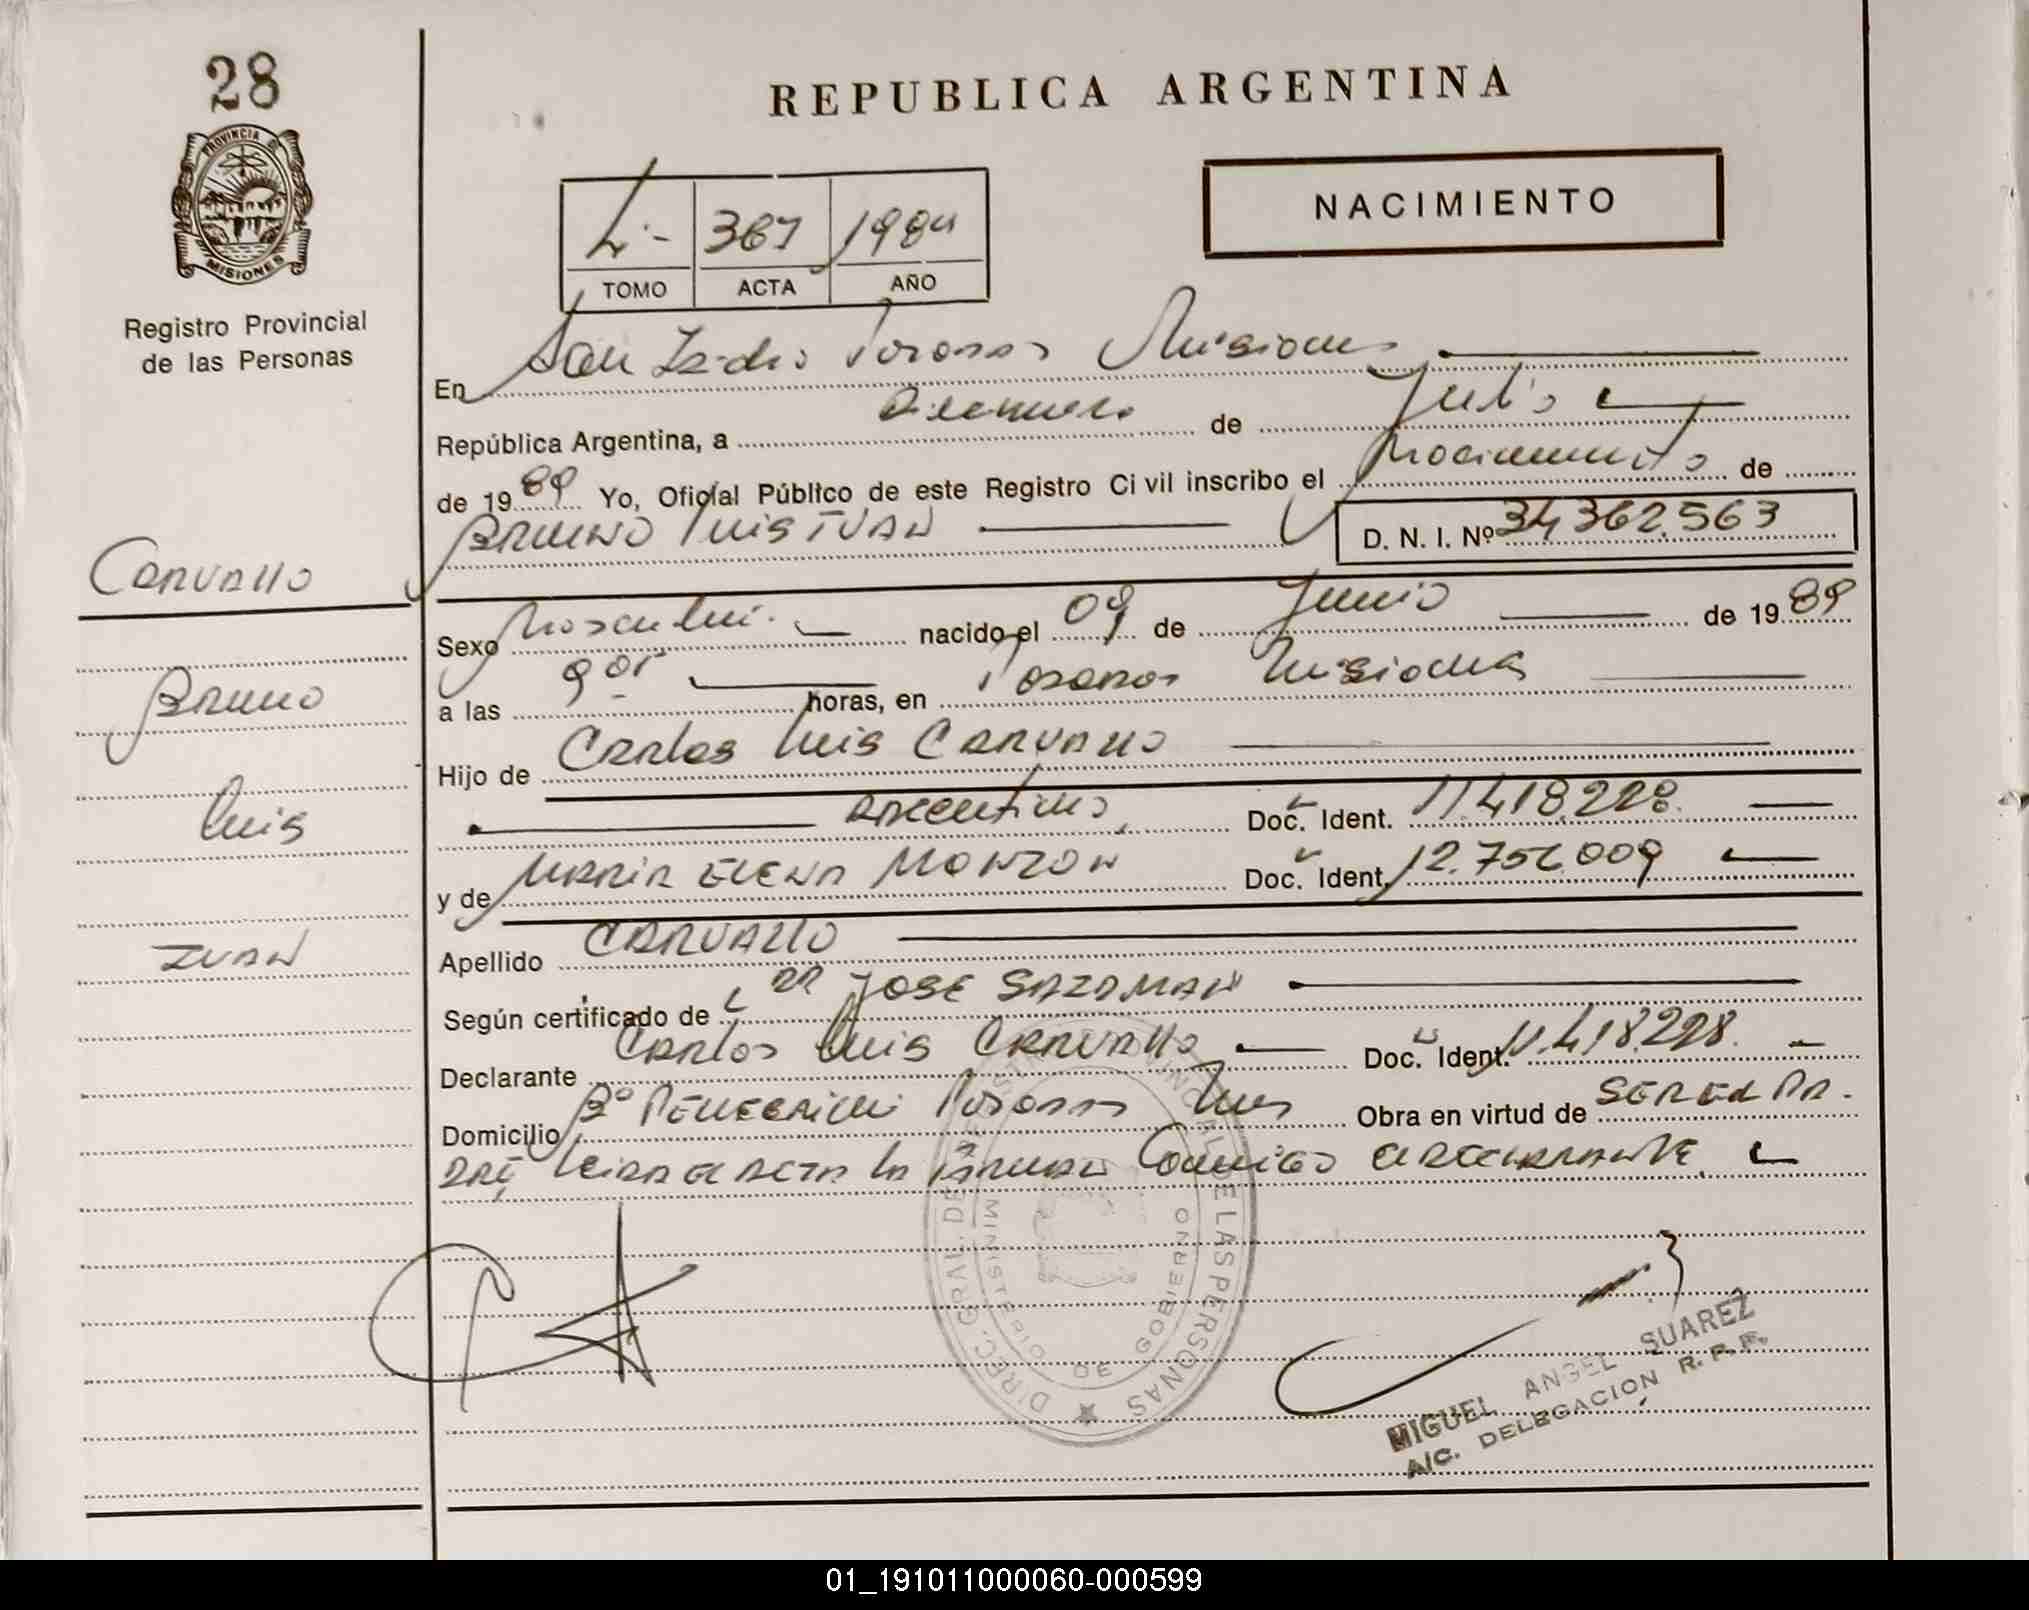 28
REPUBLICA ARGENTINA
PROVINCIA DE
MISIONES
Registro Provincial
de las Personas
NACIMIENTO
367 198
TOMO ACTA AÑO
En San Isidro Posadas Misiones
República Argentina, a de Julio
de 1989 Yo, Oficial Público de este Registro Civil inscribo el Nacimiento de
BRUNO LUIS IVAN
D. N. I. Nº 34.362.563
CARVALLO
Bruno
Luis
IVAN
Sexo Masculino nacido el 09 de Junio de 1989
a las 9 horas, en Posadas Misiones
Hijo de Carlos Luis CARVALLO
argentino, Doc. Ident. 11.418.228
y de MARIA ELENA MONZON Doc. Ident. 12.756.009
Apellido CARVALLO
Según certificado de JOSE
Declarante Carlos Luis CARVALLO Doc. Ident. 11.418.228
Domicilio Bº Posadas Mnes Obra en virtud de
Leida el acta la firman Conmigo
DIREC. GRAL. DE REGISTRO PROVINCIAL DE LAS PERSONAS
MINISTERIO DE GOBIERNO
MIGUEL ANGEL SUAREZ
A/C. DELEGACION R. P. P.
01_191011000060-000599